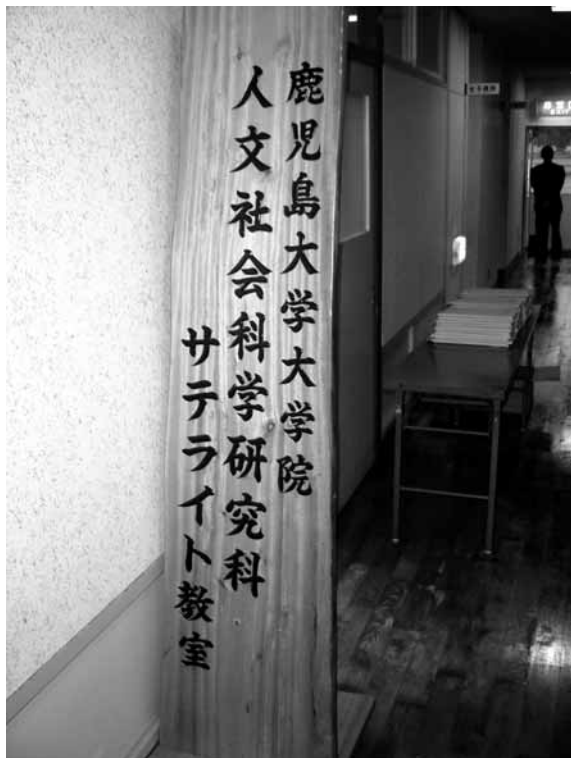 鹿児島大学大学院
人文社会科学研究科
サテライト教室